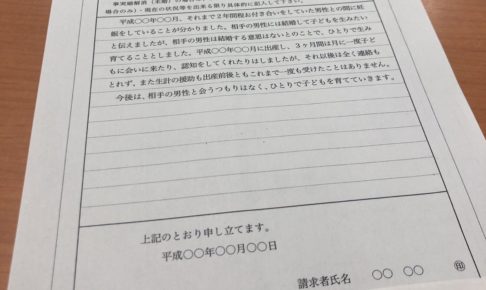 事実婚解消（未婚）の場合
場合のみ）・現在の状況等を出来る限り具体的に記入して下さい。
平成〇〇年〇〇月、それまで2年間程お付き合いをしていた男性との間に妊
娠をしていることが分かりました。相手の男性には結婚して子どもを生みたい
と伝えましたが、相手の男性は結婚する意思はないとのことで、ひとりで生み
育てることとしました。平成〇〇年〇〇月に出産し、3ヶ月間は月に一度子ど
もに会いに来たり、認知をしてくれたりはしましたが、それ以後は全く連絡も
とれず、また生計の援助も出産前後ともこれまで一度も受けたことはありません。
今後は、相手の男性と会うつもりはなく、ひとりで子どもを育てていきます。
上記のとおり申し立てます。
平成〇〇年〇〇月〇〇日
請求者氏名 〇〇 〇〇 ㊞